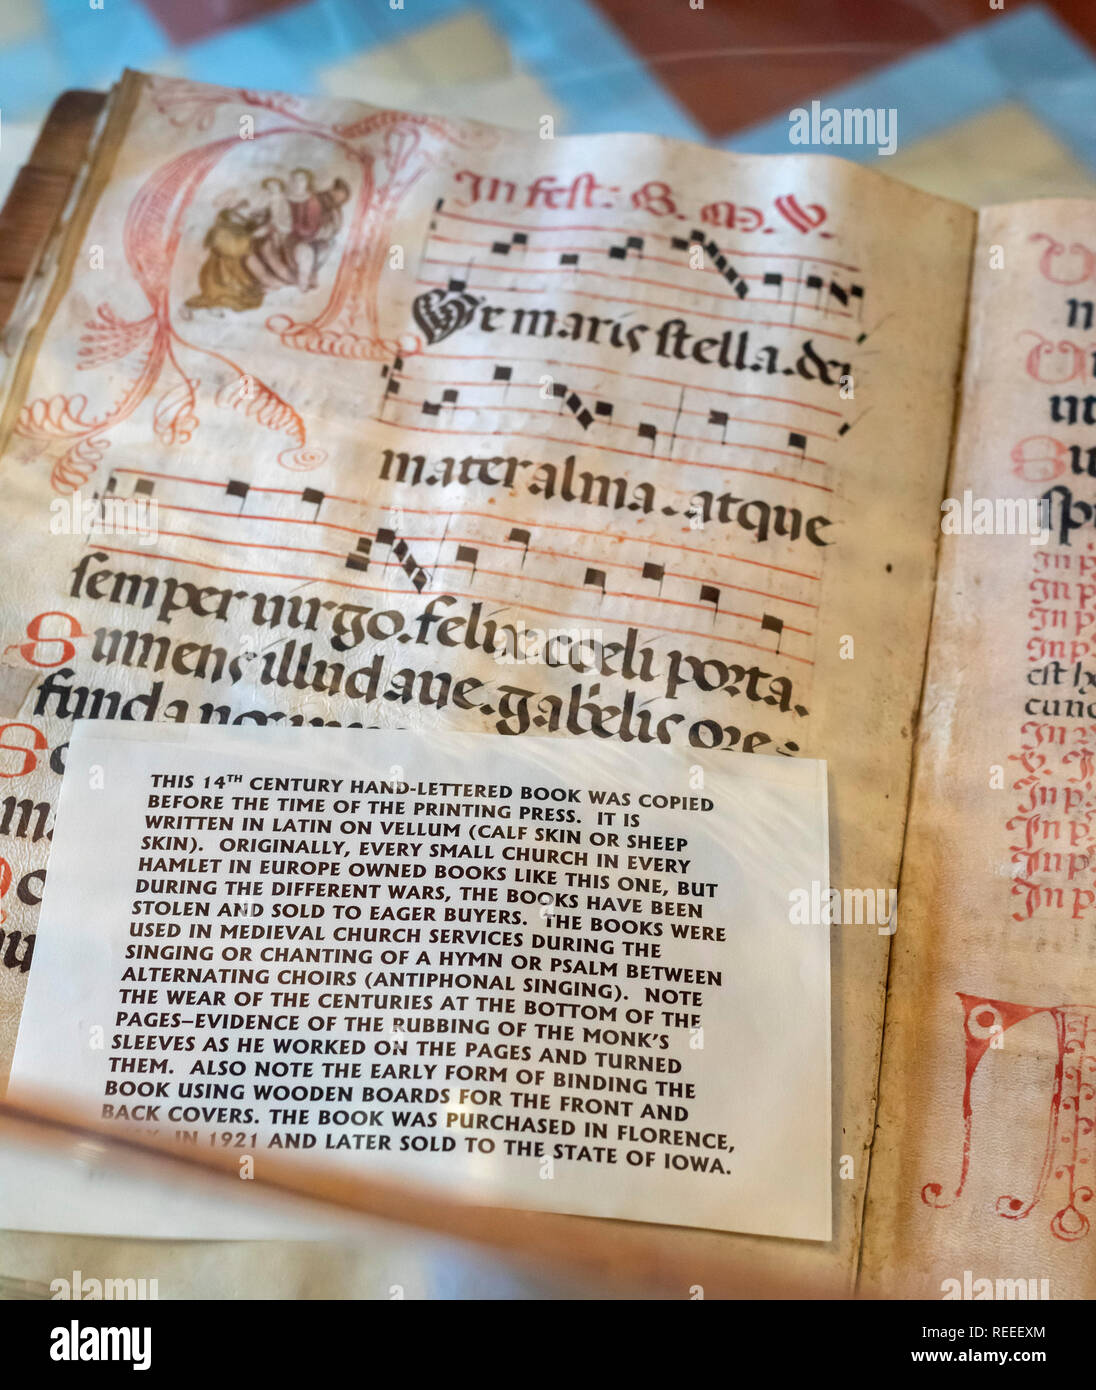 In fest: B. M. V.
Ave maris stella. dei
mater alma. atque
semper uirgo. felix cœli porta.
Sumens illud aue. gabrielis ore.
funda nos
THIS 14TH CENTURY HAND-LETTERED BOOK WAS COPIED
BEFORE THE TIME OF THE PRINTING PRESS. IT IS
WRITTEN IN LATIN ON VELLUM (CALF SKIN OR SHEEP
SKIN). ORIGINALLY, EVERY SMALL CHURCH IN EVERY
HAMLET IN EUROPE OWNED BOOKS LIKE THIS ONE, BUT
DURING THE DIFFERENT WARS, THE BOOKS HAVE BEEN
STOLEN AND SOLD TO EAGER BUYERS. THE BOOKS WERE
USED IN MEDIEVAL CHURCH SERVICES DURING THE
SINGING OR CHANTING OF A HYMN OR PSALM BETWEEN
ALTERNATING CHOIRS (ANTIPHONAL SINGING). NOTE
THE WEAR OF THE CENTURIES AT THE BOTTOM OF THE
PAGES–EVIDENCE OF THE RUBBING OF THE MONK'S
SLEEVES AS HE WORKED ON THE PAGES AND TURNED
THEM. ALSO NOTE THE EARLY FORM OF BINDING THE
BOOK USING WOODEN BOARDS FOR THE FRONT AND
BACK COVERS. THE BOOK WAS PURCHASED IN FLORENCE,
IN 1921 AND LATER SOLD TO THE STATE OF IOWA.
In p
In p
In p
In p
est h
cunc
In p
In p
In p
In p
alamy
Image ID: REEEXM
www.alamy.com